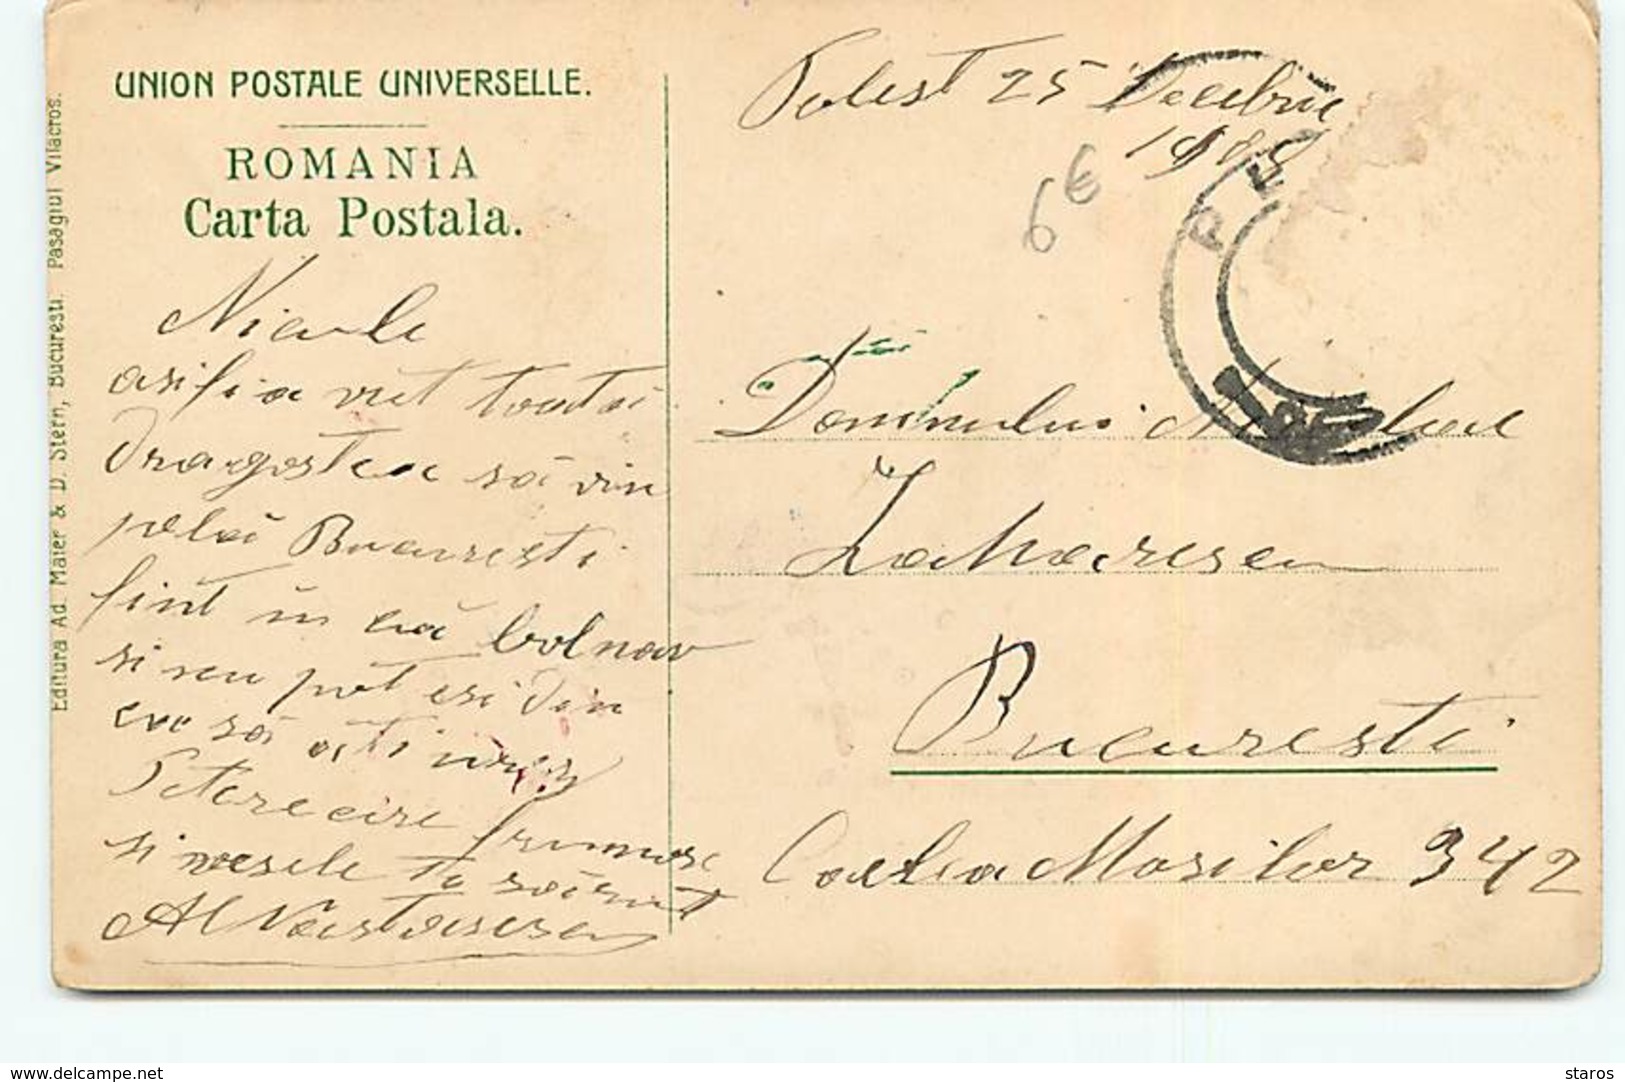 UNION POSTALE UNIVERSELLE.
ROMANIA
Carta Postala.
Editura Ad. Maier & D. Stern, Bucuresti. Pasagiul Vilacros.
25 Decebrie
6€
Nicule
asi fi a vut toată
dragostea să vin
pe la Bucuresti
sint in că bolnav
si nu pot esi din
să
Petrecere frumose
si vesele
Al Nastasescu
Domnului
Zaharescu
Bucuresti
Calea Mosilor 342
www.delcampe.net
staros